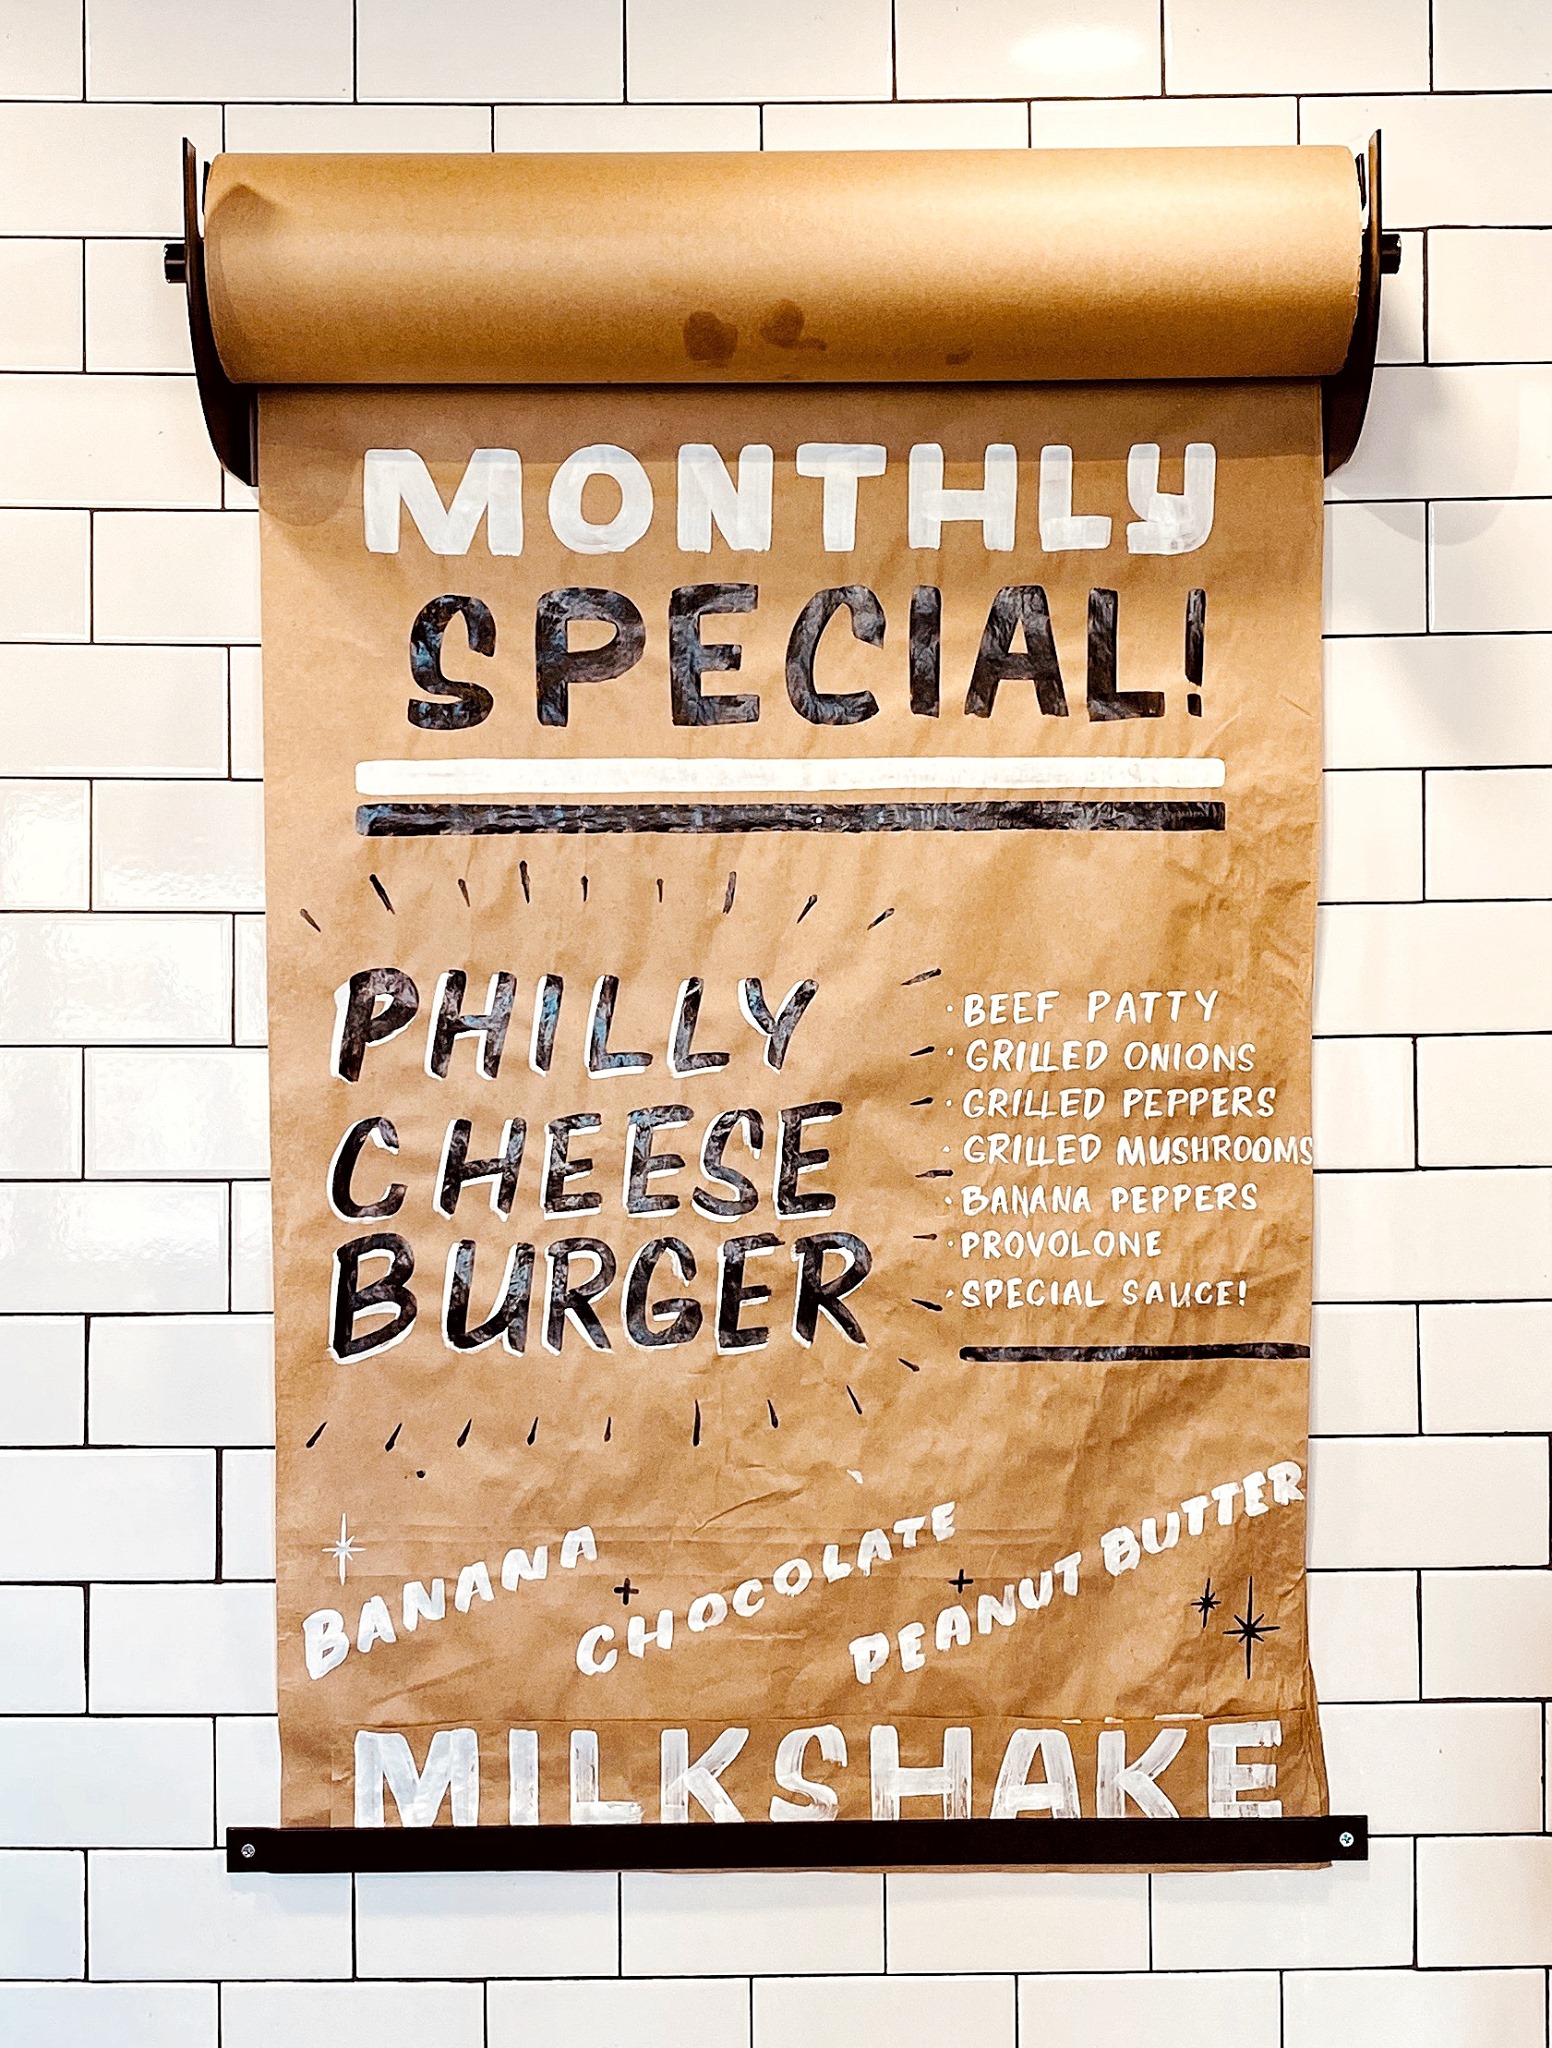 MONTHLY
SPECIAL!
PHILLY
CHEESE
BURGER
· BEEF PATTY
· GRILLED ONIONS
· GRILLED PEPPERS
· GRILLED MUSHROOMS
· BANANA PEPPERS
· PROVOLONE
· SPECIAL SAUCE!
BANANA + CHOCOLATE + PEANUT BUTTER
MILKSHAKE